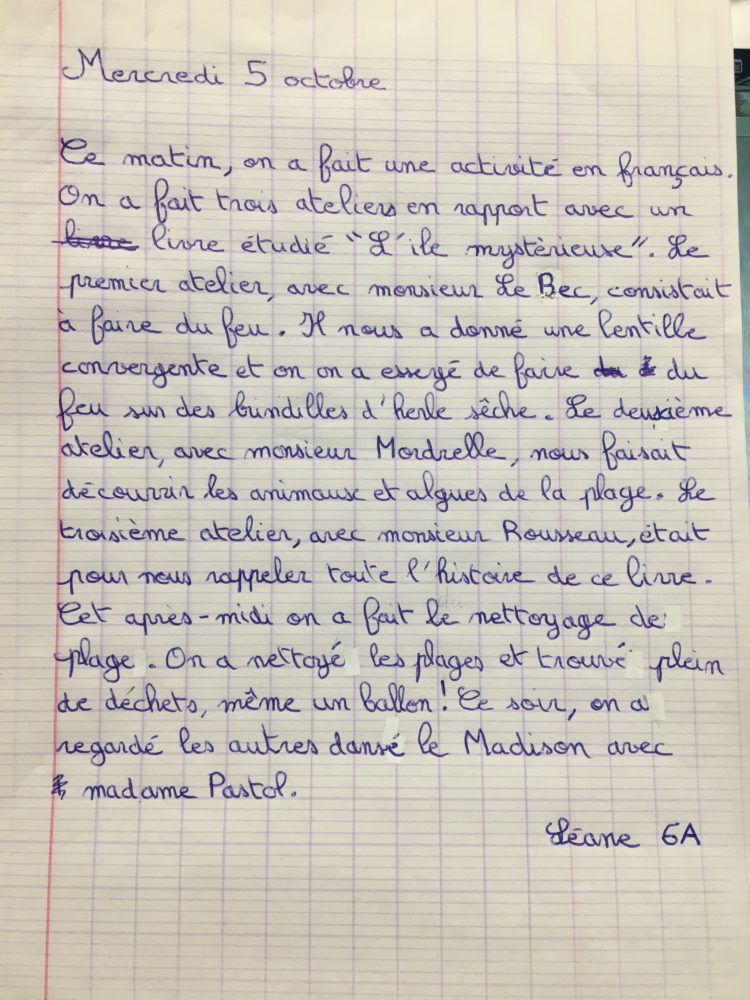 Mercredi 5 octobre
Ce matin, on a fait une activité en français.
On a fait trois ateliers en rapport avec un
livre livre étudié "L'île mystèrieuse". Le
premier atelier, avec monsieur Le Bec, consistait
à faire du feu. Il nous a donné une lentille
convergente et on on a essayé de faire du
feu sur des brindilles d'herbe sêche. Le deuxième
atelier, avec monsieur Mordrelle, nous faisait
découvrir les animaux et algues de la plage. Le
troisième atelier, avec monsieur Rousseau, était
pour nous rappeler toute l'histoire de ce livre.
Cet après-midi on a fait le nettoyage de
plage. On a nettoyé les plages et trouvé plein
de déchets, même un ballon! Ce soir, on a
regardé les autres dansé le Madison avec
madame Pastol.
Léane 6A